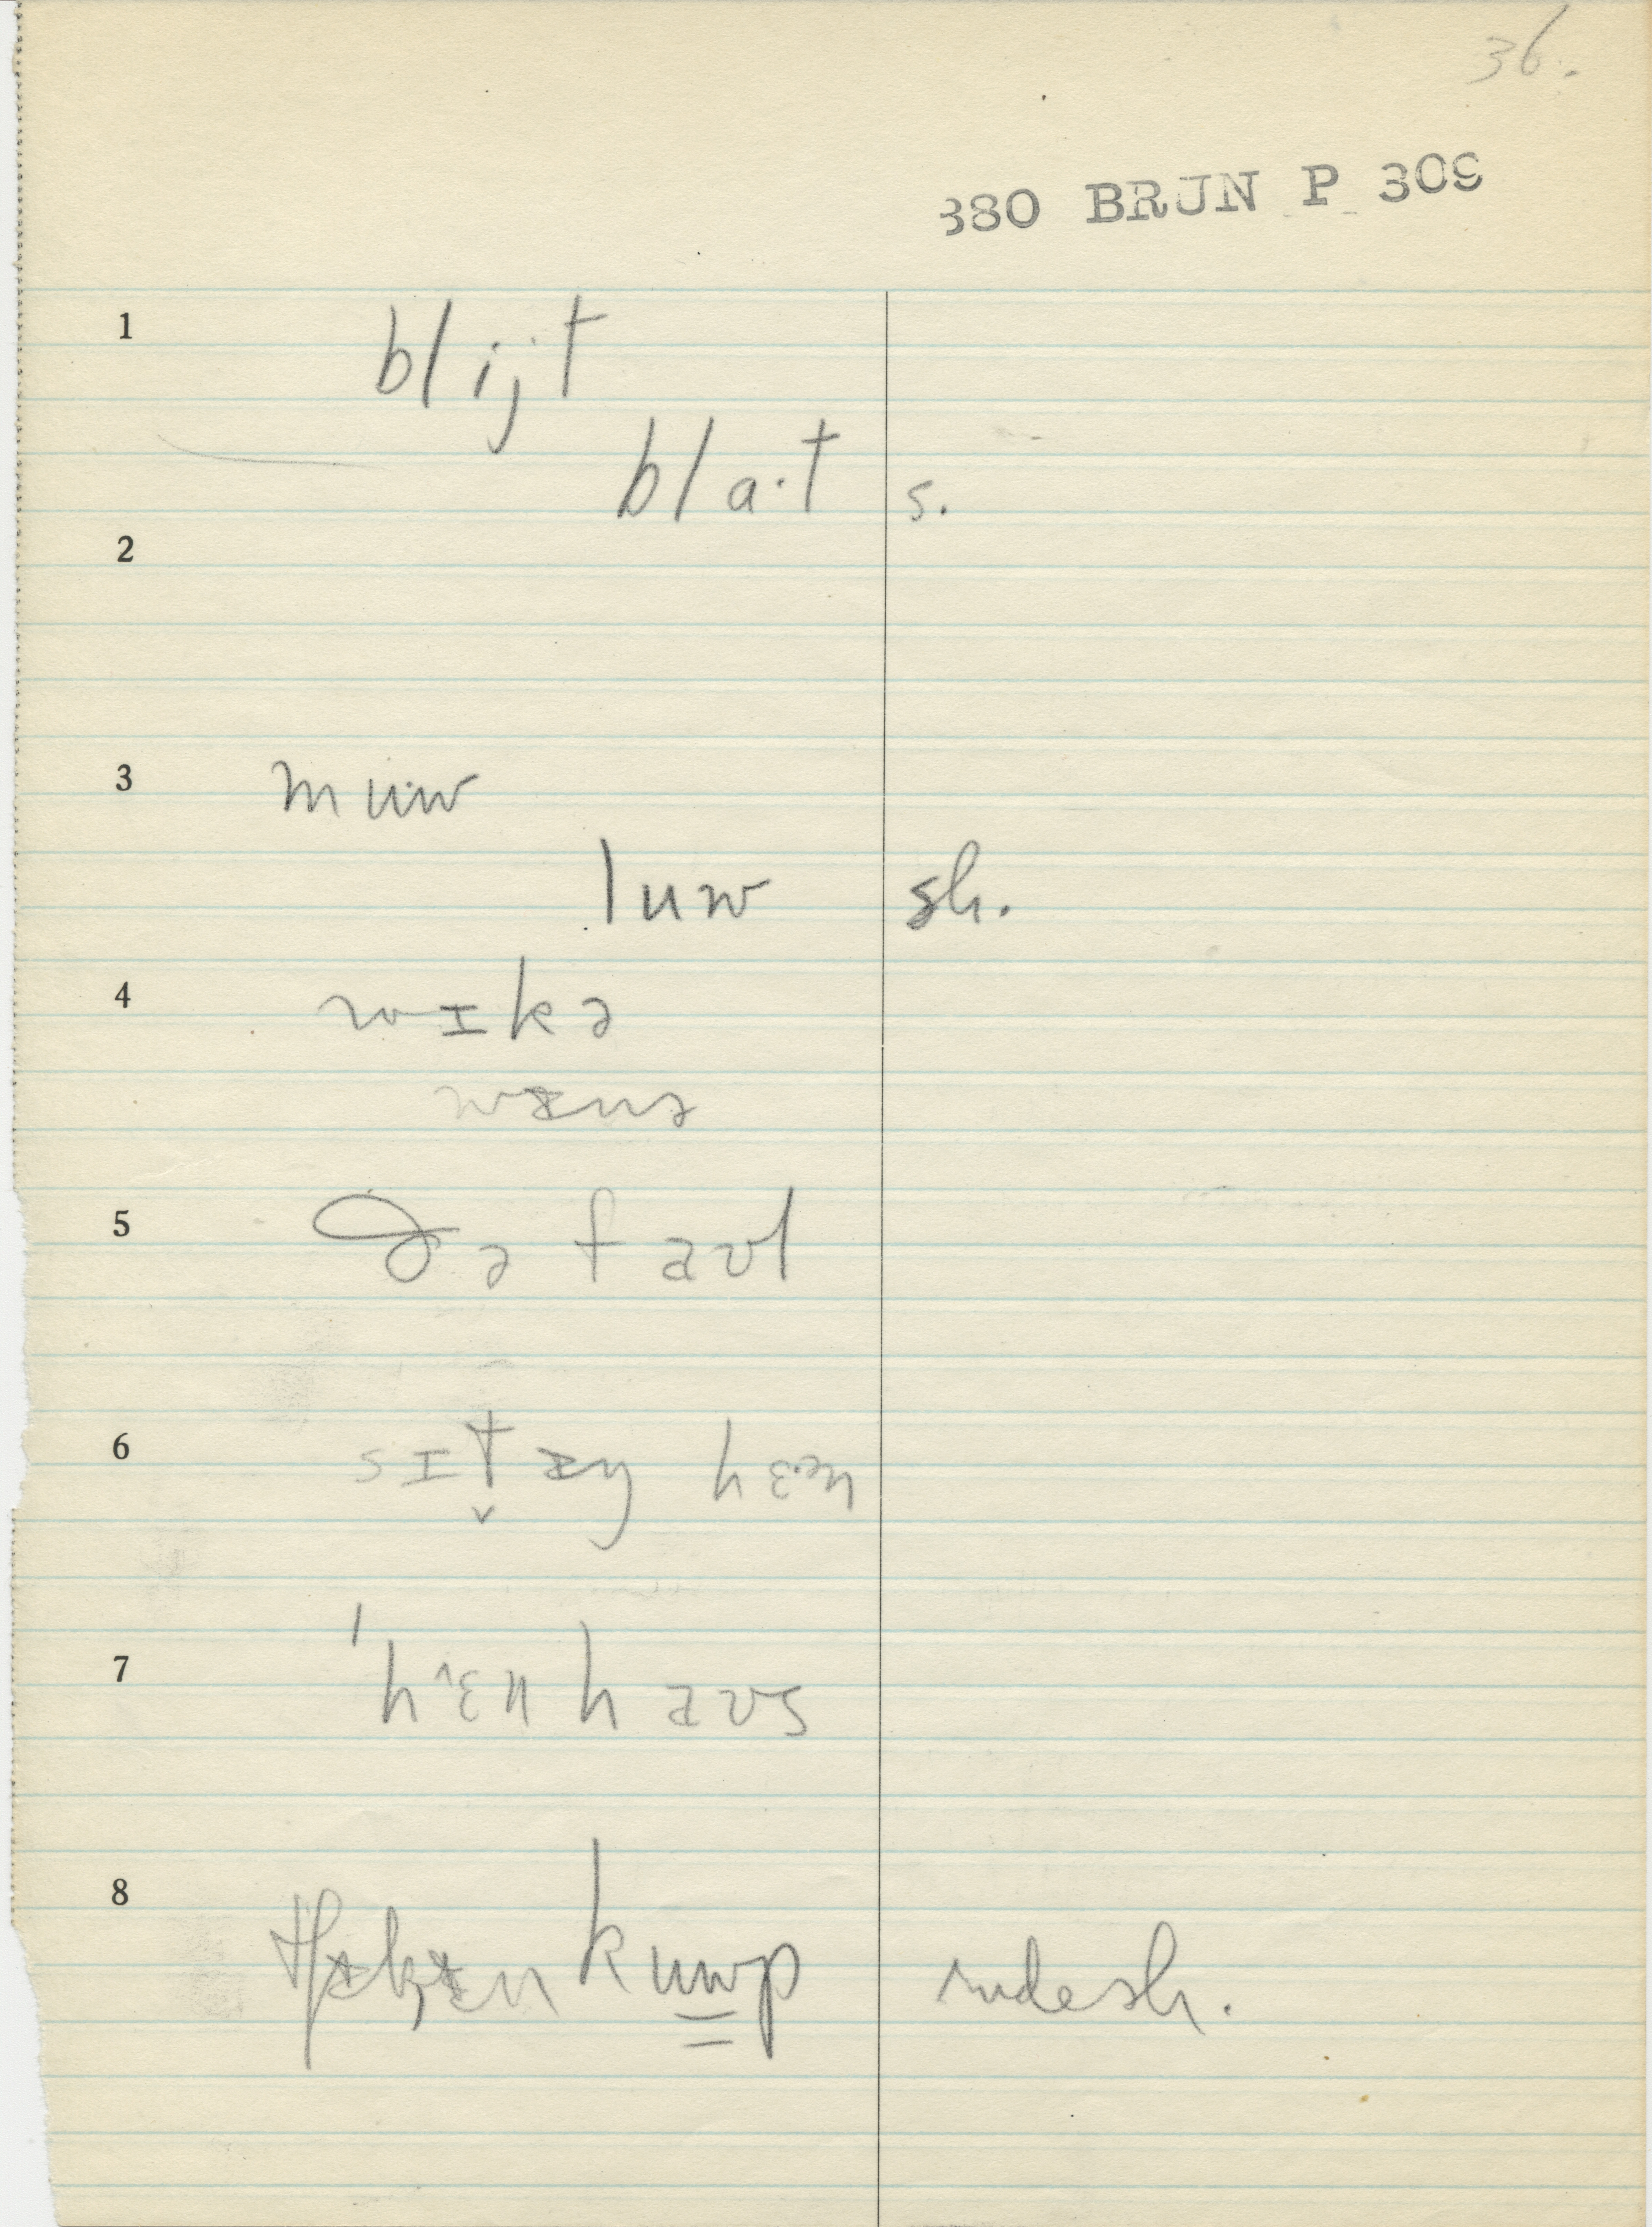 36.
380 BRUN P 309
1 blijt
bla·t s.
2
3 muw
luw sh.
4 wɪkə
wɛnə
5 də faʊl
6 sɪt̬ hɛ·n
7 'hɛnhaʊs
8 kuwp ndesh.